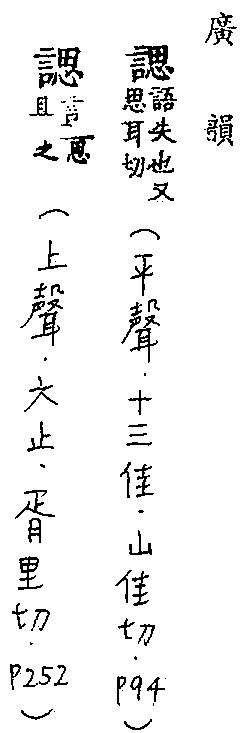 廣韻
諰語失也又思耳切(平聲.十三佳.山佳切.P94)
諰言且思之(上聲.六止.胥里切.P252)